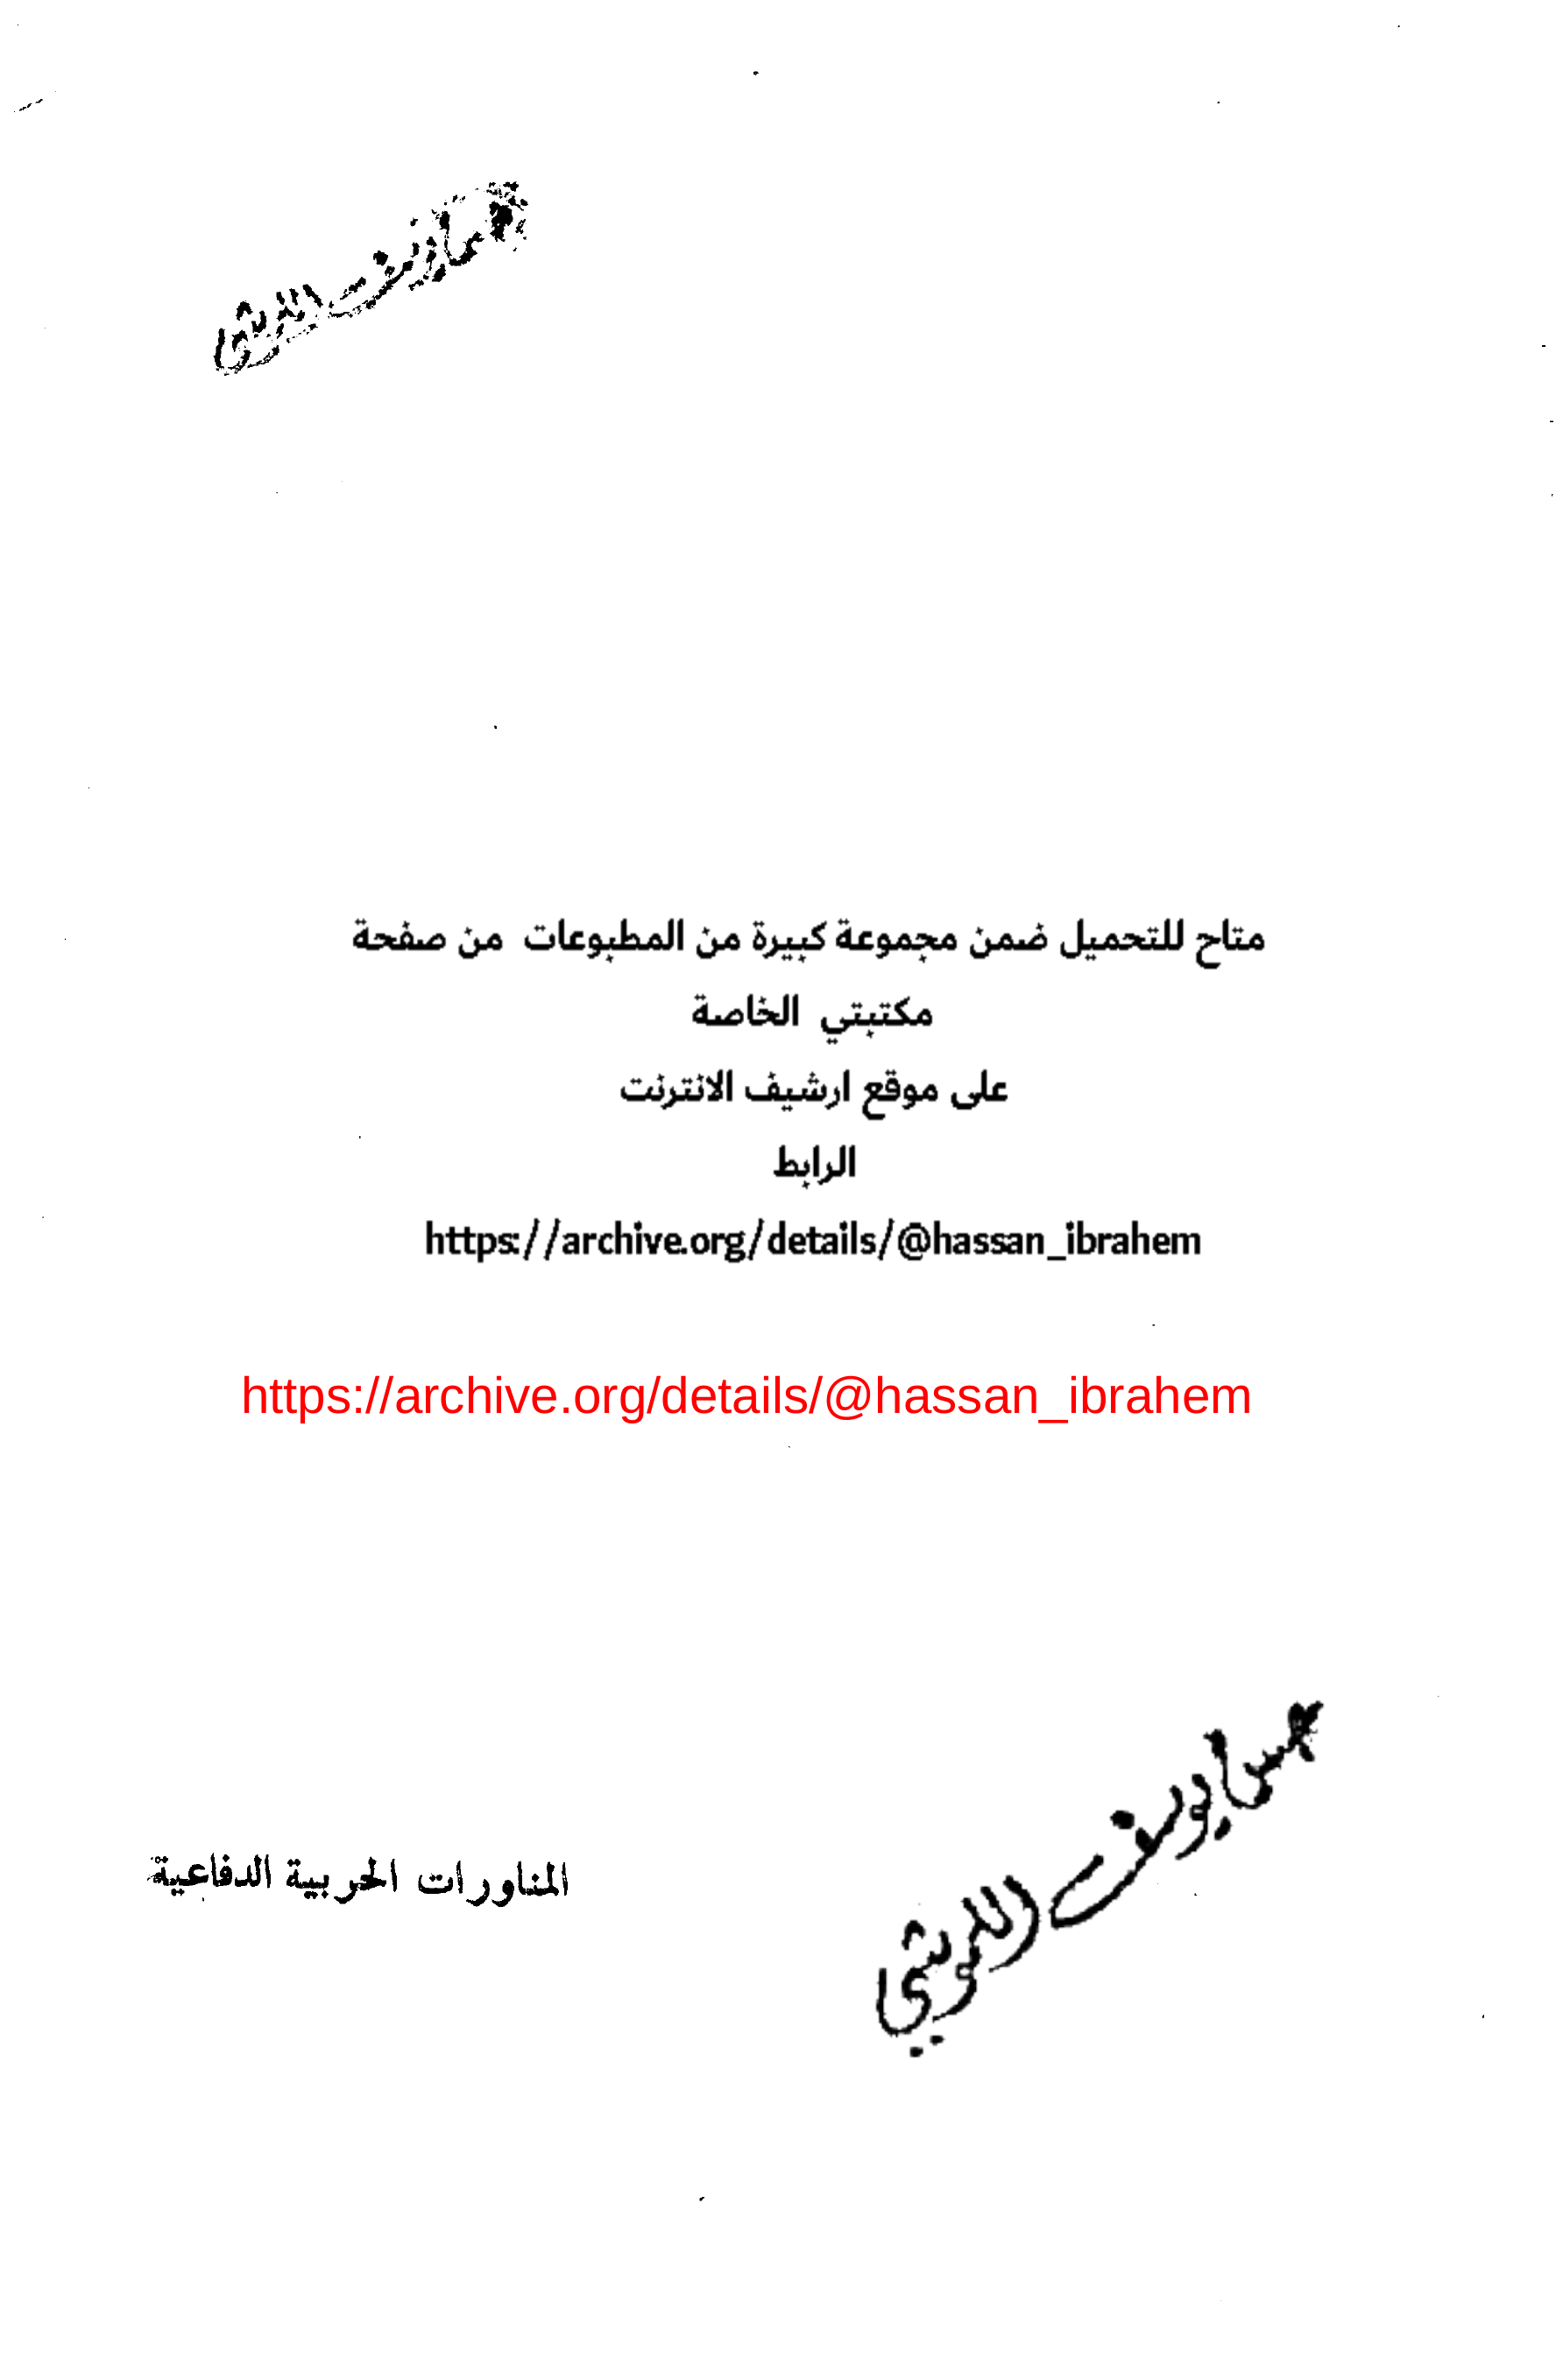 متاح للتحميل ضمن مجموعة كبيرة من المطبوعات من صفحة
مكتبتي الخاصة
على موقع ارشيف الانترنت
الرابط
https://archive.org/details/@hassan_ibrahem
https://archive.org/details/@hassan_ibrahem
المناورات الحربية الدفاعية